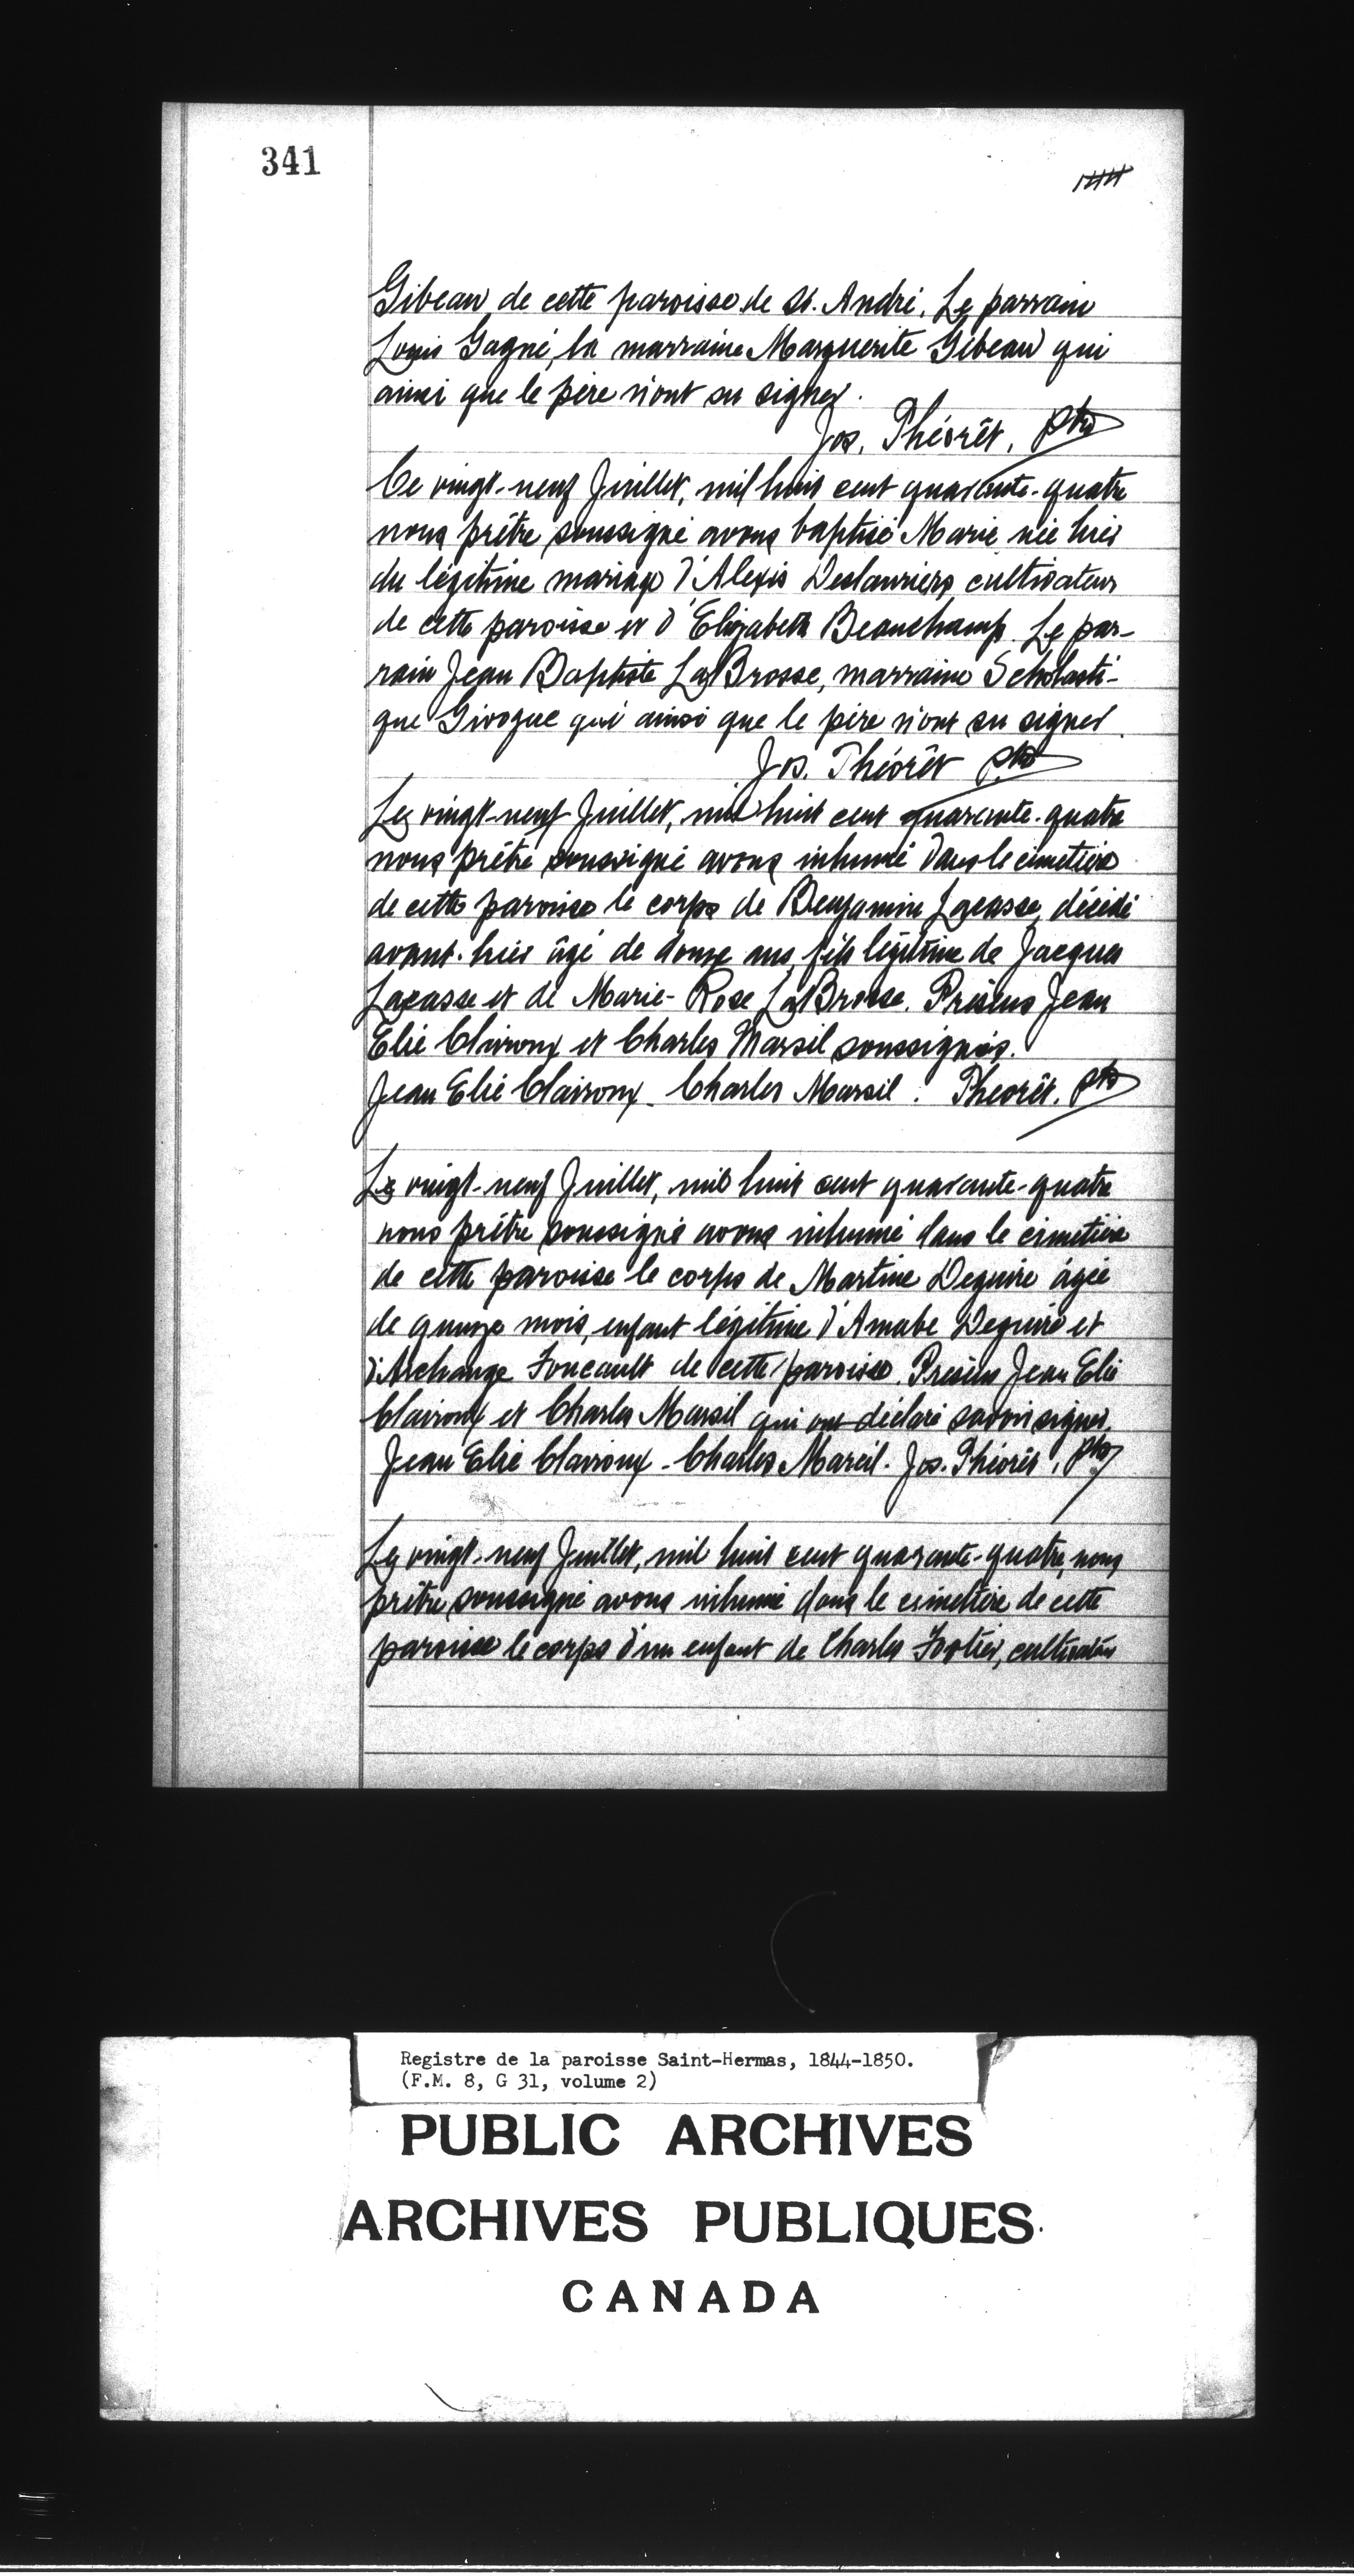 341
Gibeau de cette paroisse de St. André, Le parrain
Louis Gagné, la marraine Marguerite Gibeau qui
ainsi que le père n'ont su signer.
Jos. Théorêt, ptre
Ce vingt-neuf Juillet, mil huit cent quarante-quatre
nous prêtre soussigné avons baptisé Marie née hier
du légitime mariage d'Alexis Deslauriers, cultivateur
de cette paroisse et d'Elizabeth Beauchamp. Le par-
rain Jean Baptiste LaBrosse, marraine Scholasti-
que Givogue qui ainsi que le père n'ont su signer.
Jos. Théorêt ptre
Le vingt-neuf Juillet, mil huit cent quarante-quatre
nous prêtre soussigné avons inhumé dans le cimetière
de cette paroisse le corps de Benjamin Lacasse, décédé
avant-hier âgé de douze ans, fils légitime de Jacques
Lacasse et de Marie-Rose LaBrosse. Présens Jean
Elie Clairoux et Charles Marsil soussignés.
Jean Elie Clairoux. Charles Marsil. Theorêt. ptre
Le vingt-neuf Juillet, mil huit cent quarante-quatre
nous prêtre soussigné avons inhumé dans le cimetière
de cette paroisse le corps de Martine Deguire âgée
de quinze mois, enfant légitime d'Amabe Deguire et
d'Archange Foucault de cette paroisse. Présens Jean Elie
Clairoux et Charles Marsil qui ont déclaré savoir signer.
Jean Elie Clairoux - Charles Marcil. Jos. Théorêt, ptre
Le vingt-neuf Juillet, mil huit cent quarante-quatre, nous
prêtre soussigné avons inhumé dans le cimetière de cette
paroisse le corps d'un enfant de Charles Fortier, cultivateur
Registre de la paroisse Saint-Hermas, 1844-1850.
(F.M. 8, G 31, volume 2)
PUBLIC ARCHIVES
ARCHIVES PUBLIQUES
CANADA